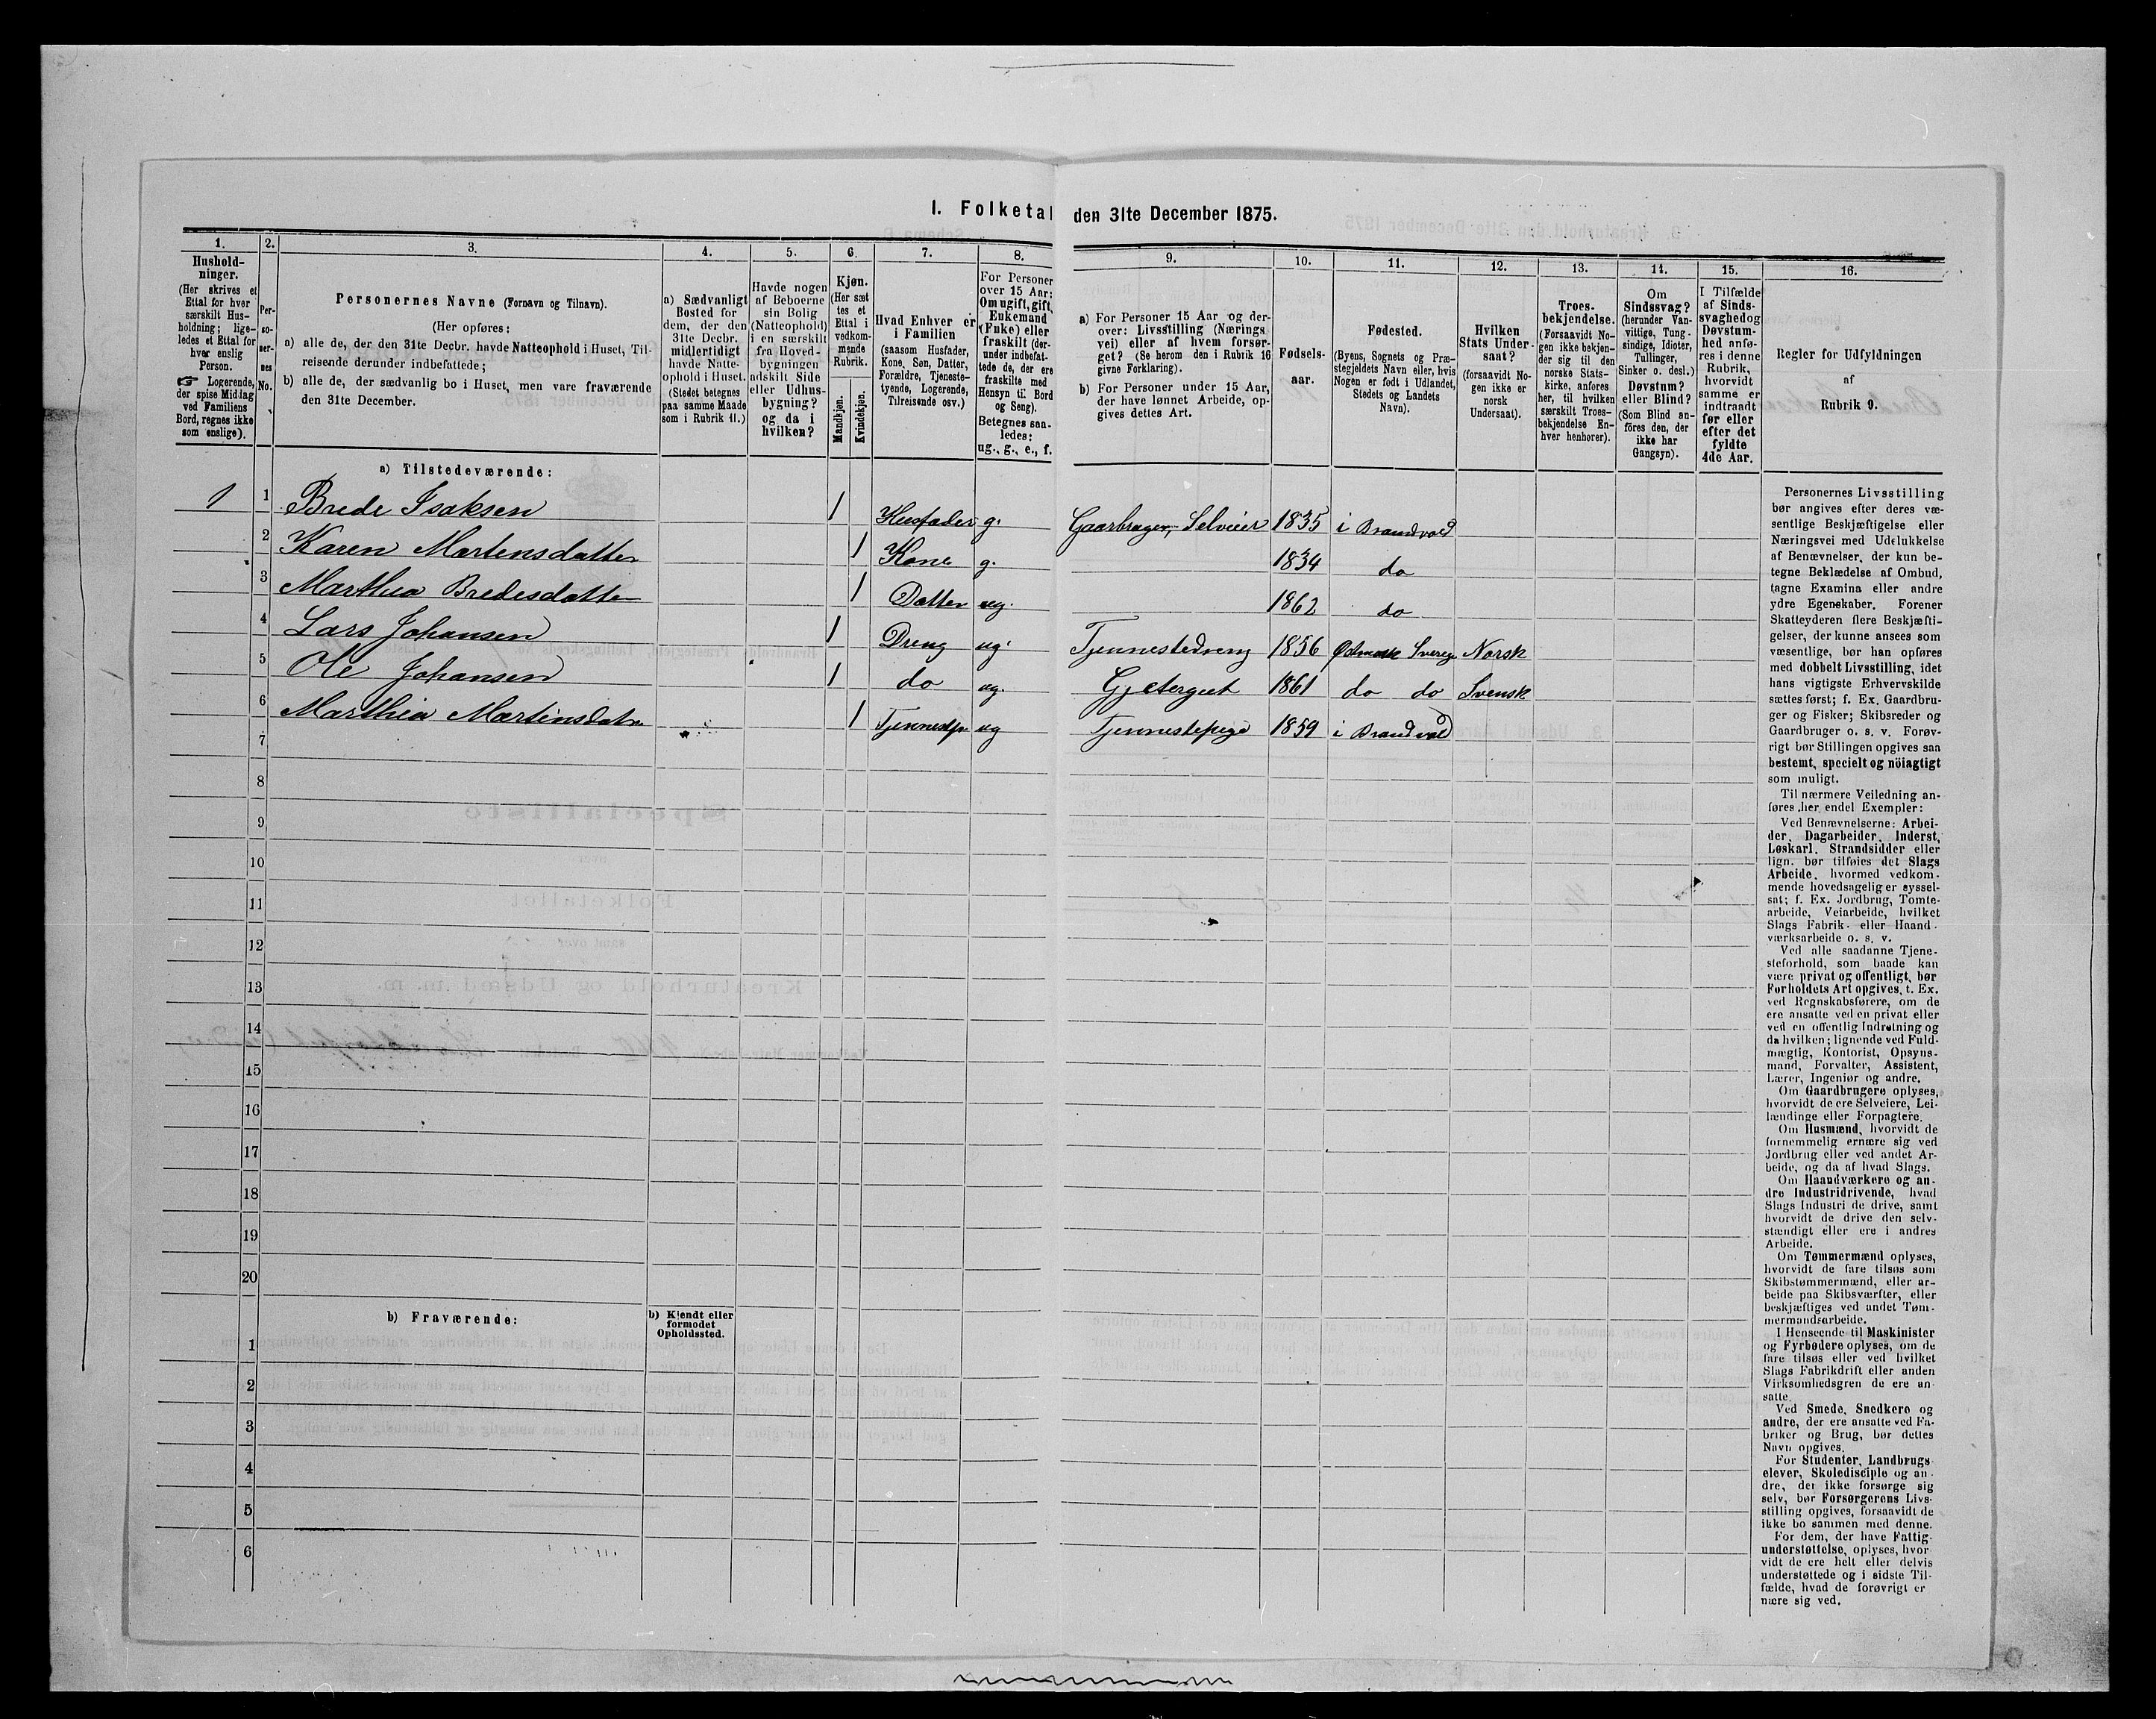 I. Folketal den 31te December 1875.
1. 2. 3. 4. 5. 6. 7. 8. 9. 10. 11. 12. 13. 14. 15. 16.
Hushold-
ninger.
(Her skrives et
Ettal for hver
særskilt Hus-
holdning; lige-
ledes et Ettal for
hver enslig
Person.
☞ Logerende,
der spise Middag
ved Familiens
Bord, regnes ikke
som enslige).
Per-
so-
ner-
nes
No.
Personernes Navne (Fornavn og Tilnavn).
(Her opføres:
a) alle de, der den 31te Decbr. havde Natteophold i Huset, Til-
reisende derunder indbefattede;
b) alle de, der sædvanlig bo i Huset, men vare fraværende
den 31te December.
a) Sædvanligt
Bosted for
dem, der den
31te Decbr.
midlertidigt
havde Natte-
ophold i Huset.
(Stedet betegnes
paa samme Maade
som i Rubrik 11.)
Havde nogen
af Beboerne
sin Bolig
(Natteophold)
i en særskilt
fra Hoved-
bygningen
adskilt Side
eller Udhus-
bygning?
og da i
hvilken?
Kjøn.
(Her sæt
tes et
Ettal i
vedkom-
mende
Rubrik.
Mandkjøn.
Kvindekjøn.
Hvad Enhver er
i Familien
(saasom Husfader,
Kone, Søn, Datter,
Forældre, Tjeneste-
tyende, Logerende,
Tilreisende osv.)
For Personer
over 15 Aar:
Om ugift, gift,
Enkemand
(Enke) eller
fraskilt (der-
under indbefat-
tede de, der ere
fraskilte med
Hensyn til Bord
og Seng).
Betegnes saa-
ledes:
ug., g., e., f.
a) For Personer 15 Aar og der-
over: Livsstilling (Nærings
vei) eller af hvem forsør-
get? (Se herom den i Rubrik 16
givne Forklaring).
b) For Personer under 15 Aar,
der have lønnet Arbeide, op-
gives dettes Art.
Fødsels-
aar.
Fødested.
(Byens, Sognets og Præ-
stegjeldets Navn eller, hvis
Nogen er født i Udlandet,
Stedets og Landets
Navn).
Hvilken
Stats Under-
saat?
(forsaavidt No-
gen ikke er
norsk
Undersaat).
Troes-
bekjendelse.
(Forsaavidt No-
gen ikke bekjen-
der sig til den
norske Stats-
kirke, anføres
her, til hvilken
særskilt Troes-
bekjendelse En-
hver henhører).
Om
Sindssvag?
(herunder Van-
vittige, Tung-
sindige, Idioter,
Tullinger,
Sinker o. desl.)
Døvstum?
eller Blind?
(Som Blind an-
føres den, der
ikke har
Gangsyn).
I Tilfælde
af Sinds-
svaghed og
Døvstum-
hed anfø-
res i denne
Rubrik,
hvorvidt
samme er
indtraadt
før eller
efter det
fyldte
4de Aar.
Regler for Udfyldningen
af
Rubrik 9.
a) Tilstedeværende:
1 1 Brede Isaksen 1 Husfader g. Gaarbruger, Selveier 1835 i Brandvold
2 Karen Martensdatter 1 Kone g. 1834 do
3 Marthea Bredesdatter 1 Datter ug. 1862 do
4 Lars Johansen 1 Dreng ug. Tjennestedreng 1856 Østmark Sverig Norsk
5 Ole Johansen 1 do ug. Gjetergut 1861 do do Svensk
6 Marthia Martinsdatr 1 Tjennestp. ug Tjennestepige 1859 i Brandvold
7
8
9
10
11
12
13
14
15
16
17
18
19
20
b) Fraværende:
b) Kjendt eller
formodet
Opholdssted.
1
2
3
4
5
6
Personernes Livsstilling
bør angives efter deres væ-
sentlige Beskjæftigelse eller
Næringsvei med Udelukkelse
af Benævnelser, der kun be-
tegne Beklædelse af Ombud,
tagne Examina eller andre
ydre Egenskaber. Forener
Skatteyderen flere Beskjæfti-
gelser, der kunne ansees som
væsentlige, bør han opføres
med dobbelt Livsstilling, idet
hans vigtigste Erhvervskilde
sættes først; f. Ex. Gaardbru-
ger og Fisker; Skibsreder og
Gaardbruger o. s. v. Forøv-
rigt bør Stillingen opgives saa
bestemt, specielt og nöiagtigt
som muligt.
Til nærmere Veiledning an-
føres her endel Exempler:
Ved Benævnelserne: Arbei-
der, Dagarbeider, Inderst,
Løskarl, Strandsidder eller
lign. bør tilføies det Slags
Arbeide, hvormed vedkom-
mende hovedsagelig er syssel-
sat; f. Ex. Jordbrug, Tomte-
arbeide, Veiarbeide, hvilket
Slags Fabrik- eller Haand-
værksarbeide o. s. v.
Ved alle saadanne Tjene-
steforhold, som baade kan
være privat og offentligt, bør
Forholdets Art opgives, t. Ex.
ved Regnskabsførere, om de
ere ansatte ved en privat eller
ved en offentlig Indretning og
da hvilken; lignende ved Fuld-
mægtig, Kontorist, Opsyns-
mand, Forvalter, Assistent,
Lærer, Ingeniør og andre.
Om Gaardbrugere oplyses,
hvorvidt de ere Selveiere, Lei-
lændinge eller Forpagtere.
Om Husmænd, hvorvidt de
fornemmelig ernære sig ved
Jordbrug eller ved andet Ar-
beide, og da af hvad Slags.
Om Haandværkere og an-
dre Industridrivende, hvad
Slags Industri de drive, samt
hvorvidt de drive den selv-
stændigt eller ere i andres
Arbeide.
Om Tømmermænd oplyses,
hvorvidt de fare tilsøs som
Skibstømmermænd, eller ar-
beide paa Skibsværfter, eller
beskjæftiges ved andet Tøm-
mermandsarbeide.
I Henseende til Maskinister
og Fyrbødere oplyses, om de
fare tilsøs eller ved hvilket
Slags Fabrikdrift eller anden
Virksomhedsgren de ere an-
satte.
Ved Smede, Snedkere og
andre, der ere ansatte ved Fa-
briker og Brug, bør dettes
Navn opgives.
For Studenter, Landbrugs-
elever, Skoledisciple og an-
dre, der ikke forsørge sig
selv, bør Forsørgerens Livs-
stilling opgives, forsaavidt de
ikke bo sammen med denne.
For dem, der have Fattig-
understøttelse, oplyses, hvor-
vidt de ere helt eller delvis
understøttede og i sidste Til-
fælde, hvad de forøvrigt er
nære sig ved.